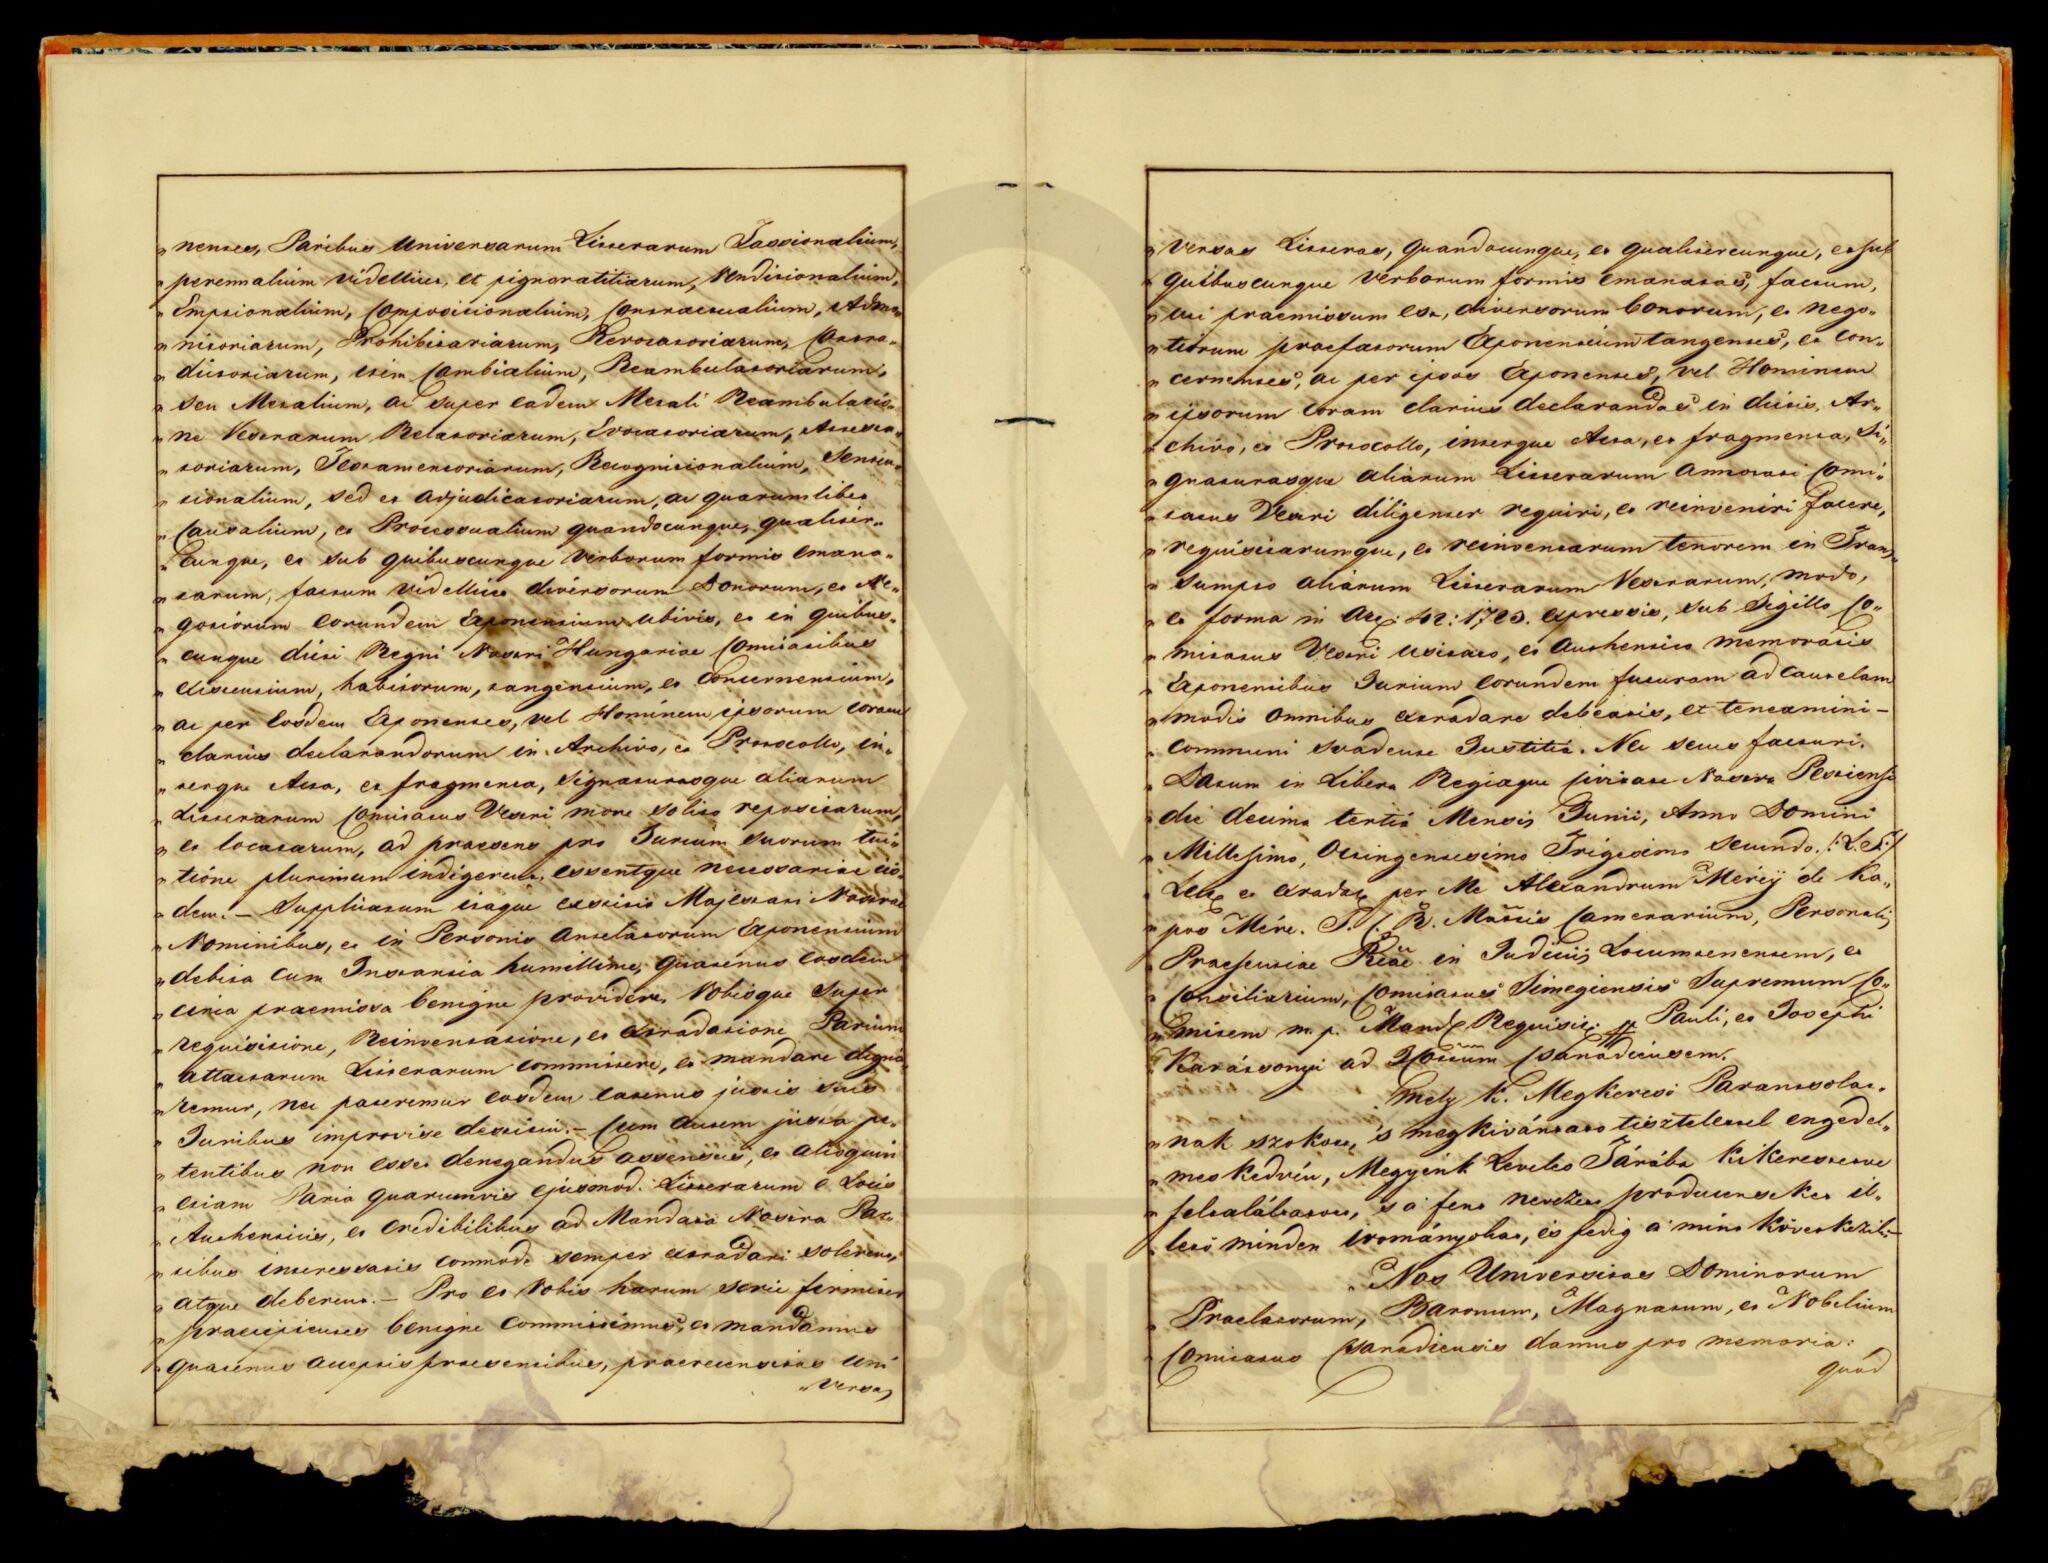 „ nenses, Paribus Universarum Litterarum Fassionalium,
„ perennalium videlicet, et pignoratitiarum, Venditionalium,
„ Emptionalium, Compositionalium, Contractualium, Admo„
„ nitoriarum, Prohibitoriarum, Revocatoriarum, Contra„
„ dictoriarum, item Cambialium, Reambulatoriarum,
„ seu Metalium, ac super eadem Metali Reambulatio„
„ ne Vestrarum Relatoriarum, Evocatoriarum, Attesta„
„ toriarum, Testamentoriarum, Recognitionalium, Senten„
„ tionalium, sed et adjudicatoriarum, ac quarumlibet
„ Causalium, et Processualium quandocunque, qualiter„
„ cunque, et sub quibuscunque Verborum formis emana„
„ tarum, factum videlicet diversorum Bonorum, et Ne„
„ gotiorum eorundem Exponentium ubivis, et in quibus„
„ cunque dicti Regni Nostri Hungariae Comitatibus
„ existentium, habitorum, tangentium, et Concernentium,
„ ac per Eosdem Exponentes, vel Hominem ipsorum coram
„ clarius declarandorum in Archivo, et Protocollo, in„
„ terque Acta, et fragmenta, Signaturasque aliarum
„ Litterarum Comitatus Vestri more solito repositarum,
„ et locatarum, ad praesens pro Jurium suorum tui„
„ tione plurimum indigerent, essentque necessariae eis„
„ dem. – Supplicatum itaque extitit Majestati Nostrae
„ Nominibus, et in Personis antelatorum Exponentium
„ debita cum Instantia humillime, quatenus eosdem
„ circa praemissa benigne providere, Nobisque super
„ requisitione, Reinventatione, et extradatione Parium
„ attactarum Litterarum committere, et mandare digna„
„ remur, nec pateremur eosdem eatenus justis suis
„ Juribus improvise destitui. – Cum autem justa pe„
„ tentibus non esset denegandus assensus, et alioquin
„ etiam Paria quarumvis ejusmod. Litterarum e Locis
„ Authenticis, et Credibilibus ad Mandata Nostra Par„
„ tibus interessatis commode semper extradari solerent,
„ atque deberent. – Pro eo Vobis harum serie firmiter
„ praecipientes benigne committimus, et mandamus
„ quatenus acceptis praesentibus, praerecensitas Uni
„ versas
„ Versas Litteras, quandocunque, et qualitercunque, et sub
„ quibuscunque Verborum formis emanatas, factum,
„ uti praemissum est, diversorum bonorum, et nego„
„ tiorum praefatorum Exponentium tangentes, et con„
„ cernentes, ac per ipsos Exponentes, vel Hominem
„ ipsorum coram clarius declarandas in dictis, Ar„
„ chivo, et Protocollo, interque Acta, et fragmenta, Si„
„ gnaturasque aliarum Litterarum annotati Comi„
„ tatus Vestri diligenter requiri, et reinveniri facere,
„ requisitarumque, et reinventarum tenorem in Tran„
„ sumpto aliarum Litterarum Vestrarum, modo,
„ et forma in Art: 42: 1723. expressis, sub Sigillo Co„
„ mitatus Vestri usitato, et authentico memoratis
„ Exponentibus Jurium eorundem futuram ad cautelam
„ modis omnibus extradare debeatis, et teneamini –
„ communi suadente Justitia. Nec secus facturi.
„ Datum in Libera Regiaque Civitate Nostra Pestiensi
„ die decima tertia Mensis Junii, Anno Domini
„ Millesimo, Octingentesimo Trigesimo secundo. /:L.S.:/
„ Lect et extradat per Me Alexandrum Mérey de Ka„
„ pos Mére. S. C. R. Mattis Camerarium, Personalis
„ Praesentiae Reae in Judiciis Locumtenentem, et
„ Consiliarium, Comitatus Simegiensis Supremum Co„
„ mitem m. p. Mand Requisit: pp Pauli, et Josephi
„ Karácsonyi ad Cottum Csanádiensem.
Mely K. Megkereső Parancsolat„
„ nak szokott, 's megkivántató tisztelettel engedel„
„ meskedvén, Megyénk Leveles Tárába kikerestetve
„ feltaláltatott, 's a' fent nevezett producenseket il„
„ lető minden irományokat, és pedig a' mint következik: –
„ Nos Universitas Dominorum
„ Praelatorum, Baronum, Magnatum, et Nobilium
„ Comitatus Csanadiensis damus pro memoria:
quod